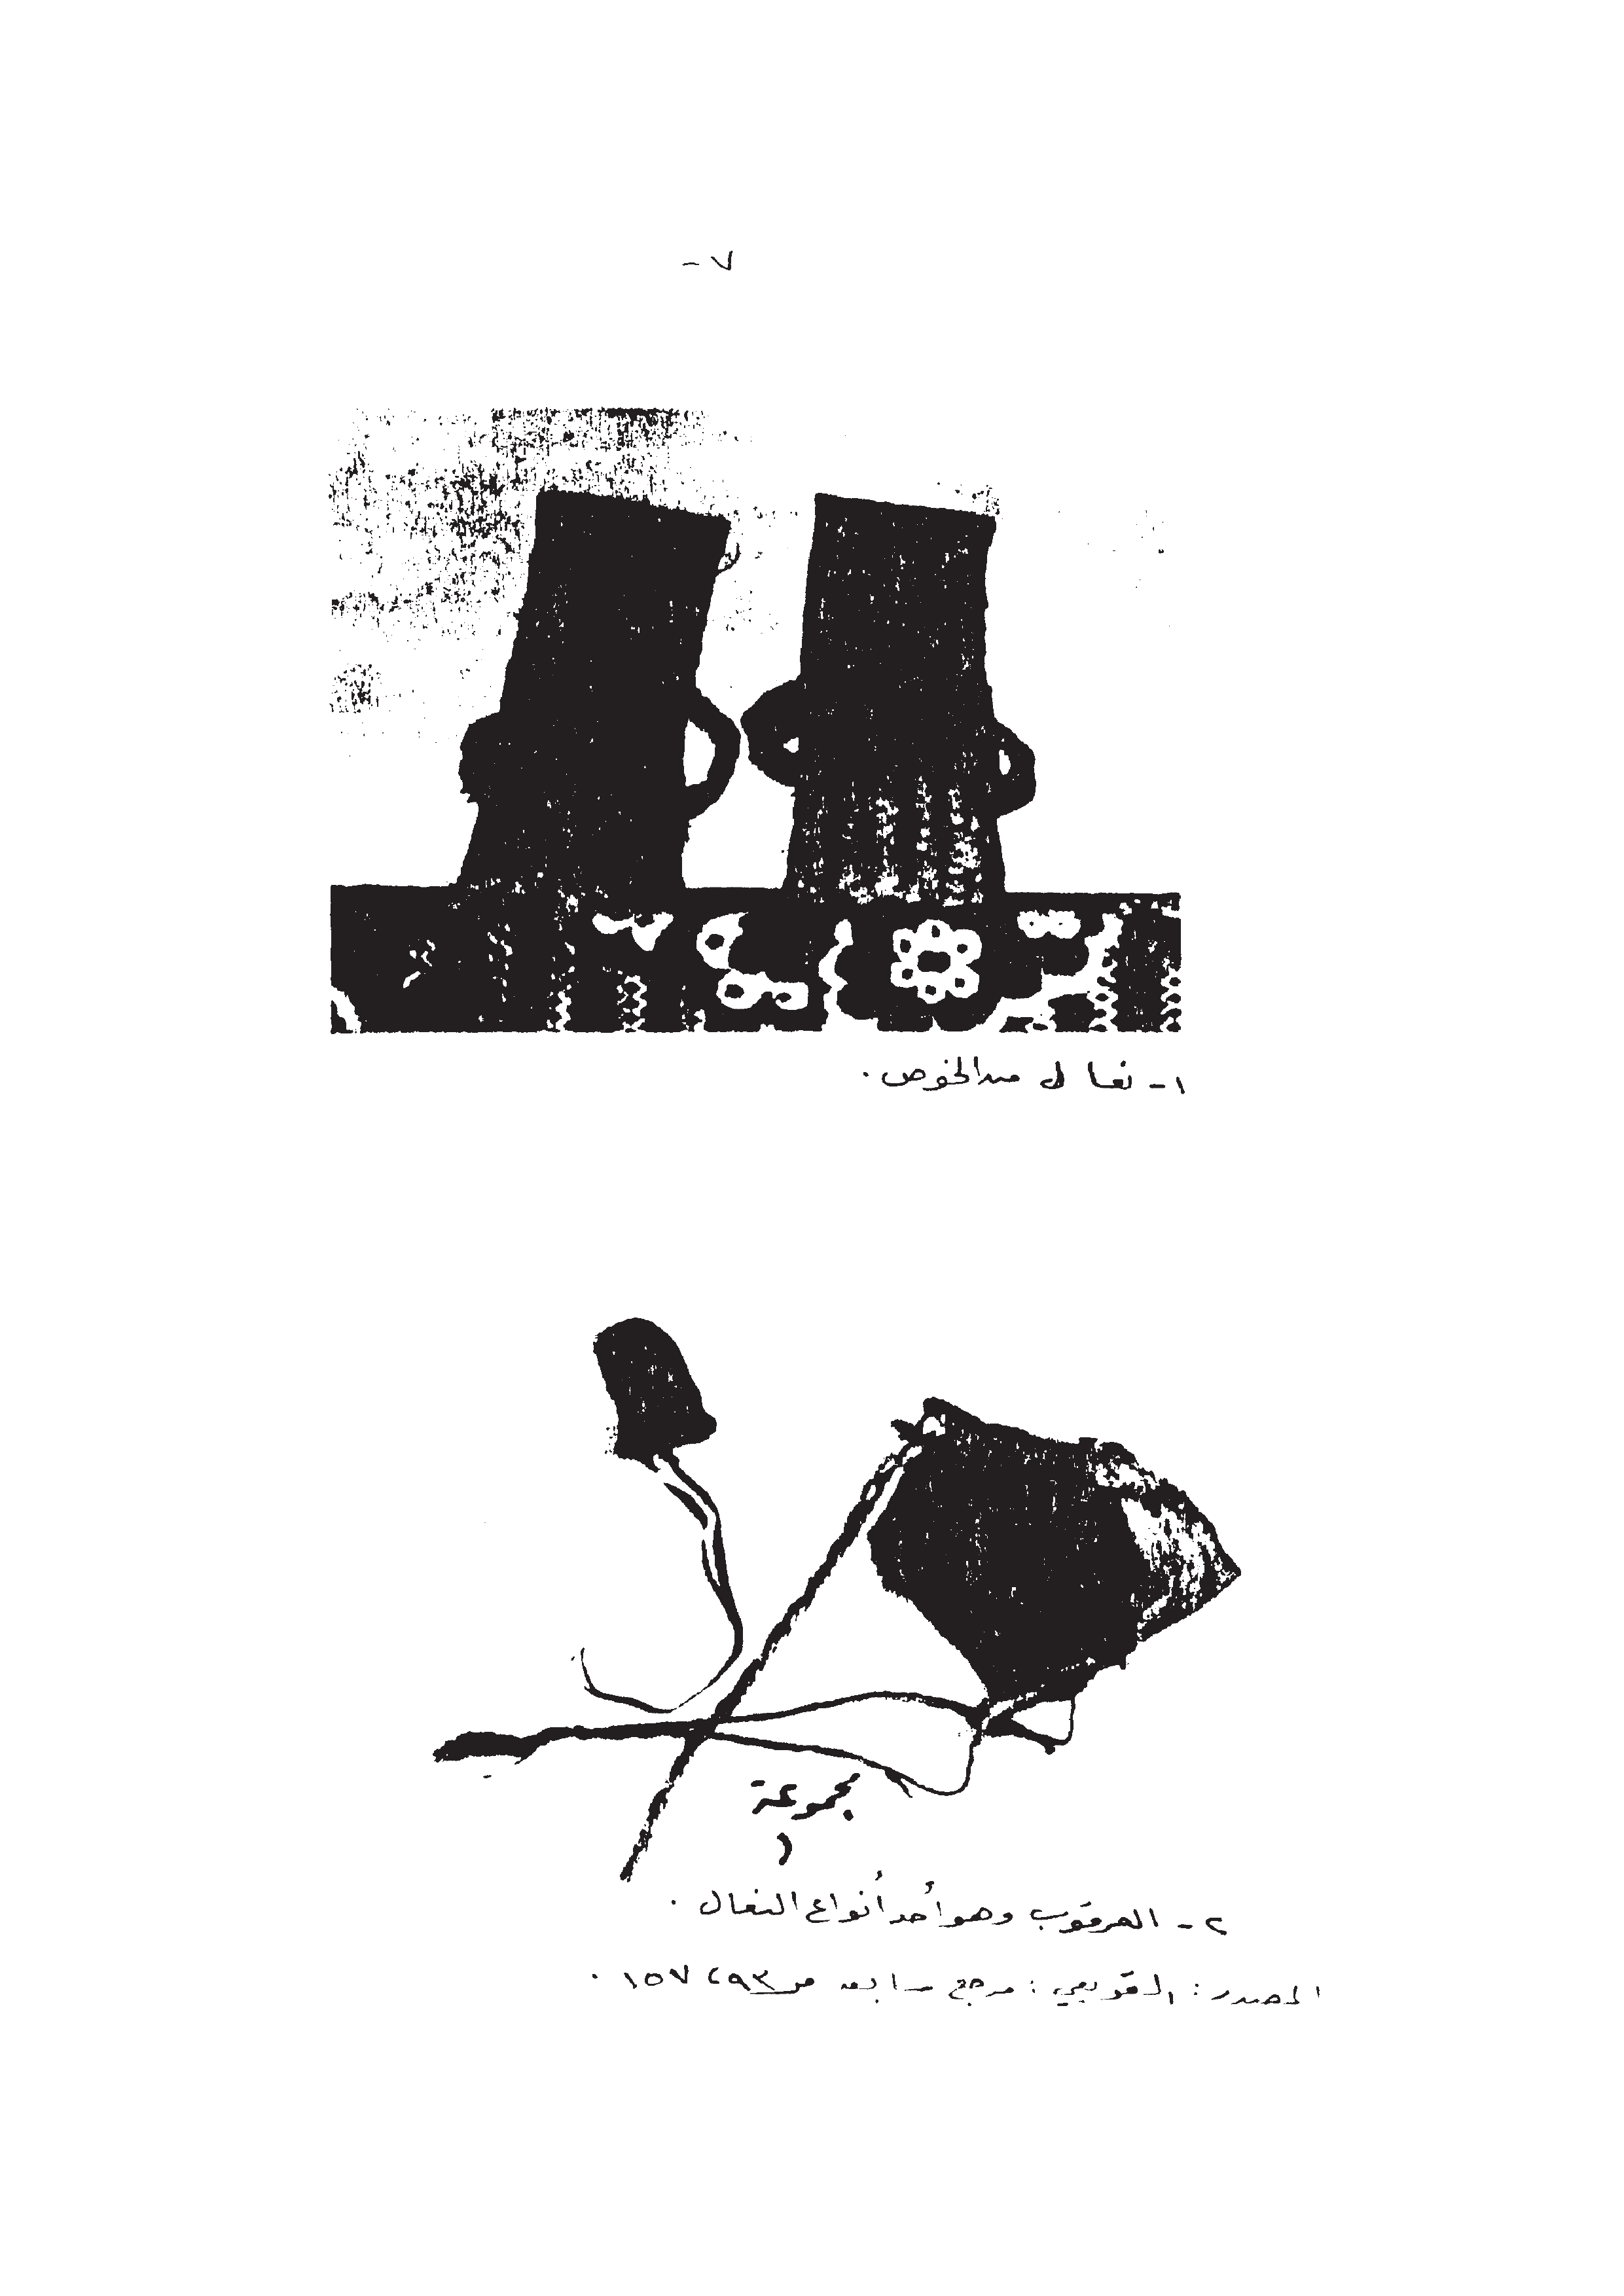 ٧ -
١ - نعال من الخوص .
مجموعة
١
٢ - العرقوب وهو أحد أنواع النعال .
المصدر : القويعي : مرجع سابق ص ٩٣ ، ١٥٧ .